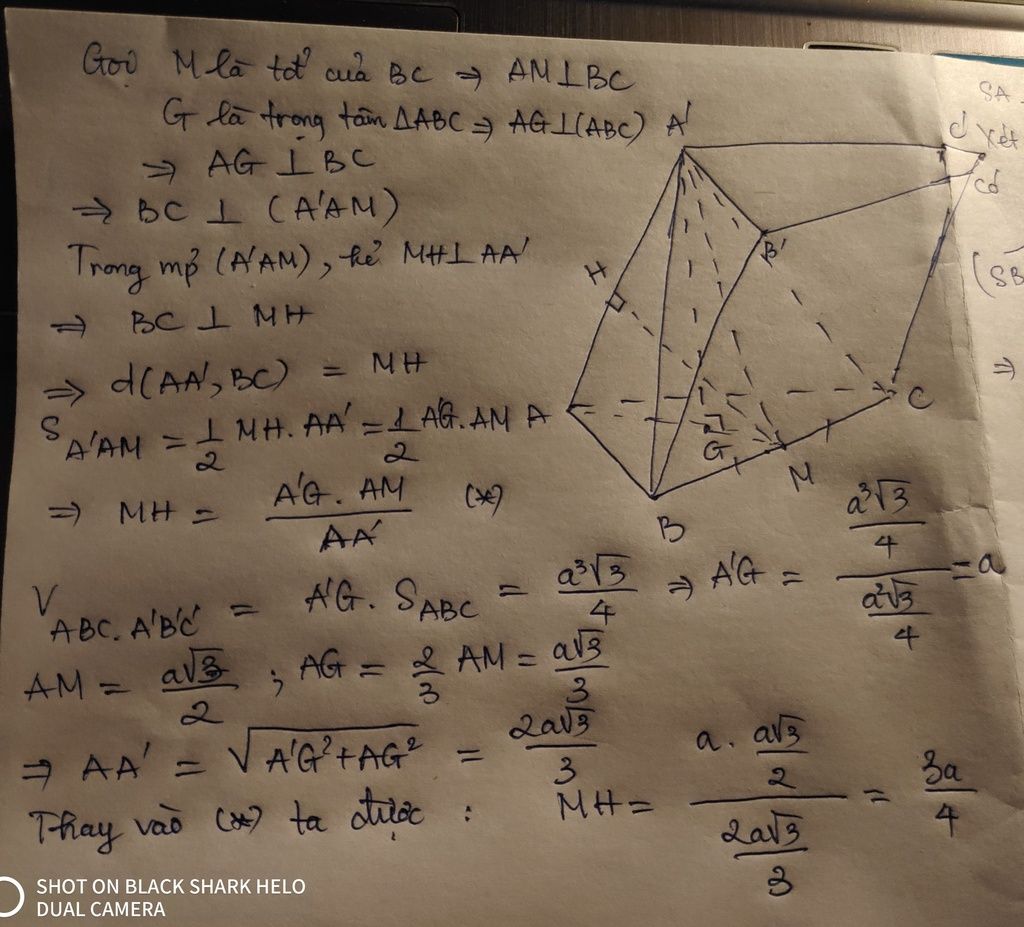 Gọi M là tđ của BC ⇒ AM⊥BC
G là trọng tâm ΔABC ⇒ AG⊥(ABC)
⇒ AG ⊥ BC
⇒ BC ⊥ (A'AM)
Trong mp (A'AM), kẻ MH⊥AA'
⇒ BC ⊥ MH
⇒ d(AA', BC) = MH
S_A'AM = 1/2 MH. AA' = 1/2 A'G. AM
⇒ MH = A'G. AM / AA' (*)
V_ABC.A'B'C' = A'G. S_ABC = a³√3/4 ⇒ A'G = (a³√3/4)/(a²√3/4) = a
AM = a√3/2 ; AG = 2/3 AM = a√3/3
⇒ AA' = √(A'G²+AG²) = 2a√3/3
Thay vào (*) ta được : MH = (a. a√3/2)/(2a√3/3) = 3a/4
A'
C'
B'
H
A
G
M
C
B
SA
Xét
Có
(SB
⇒
SHOT ON BLACK SHARK HELO
DUAL CAMERA